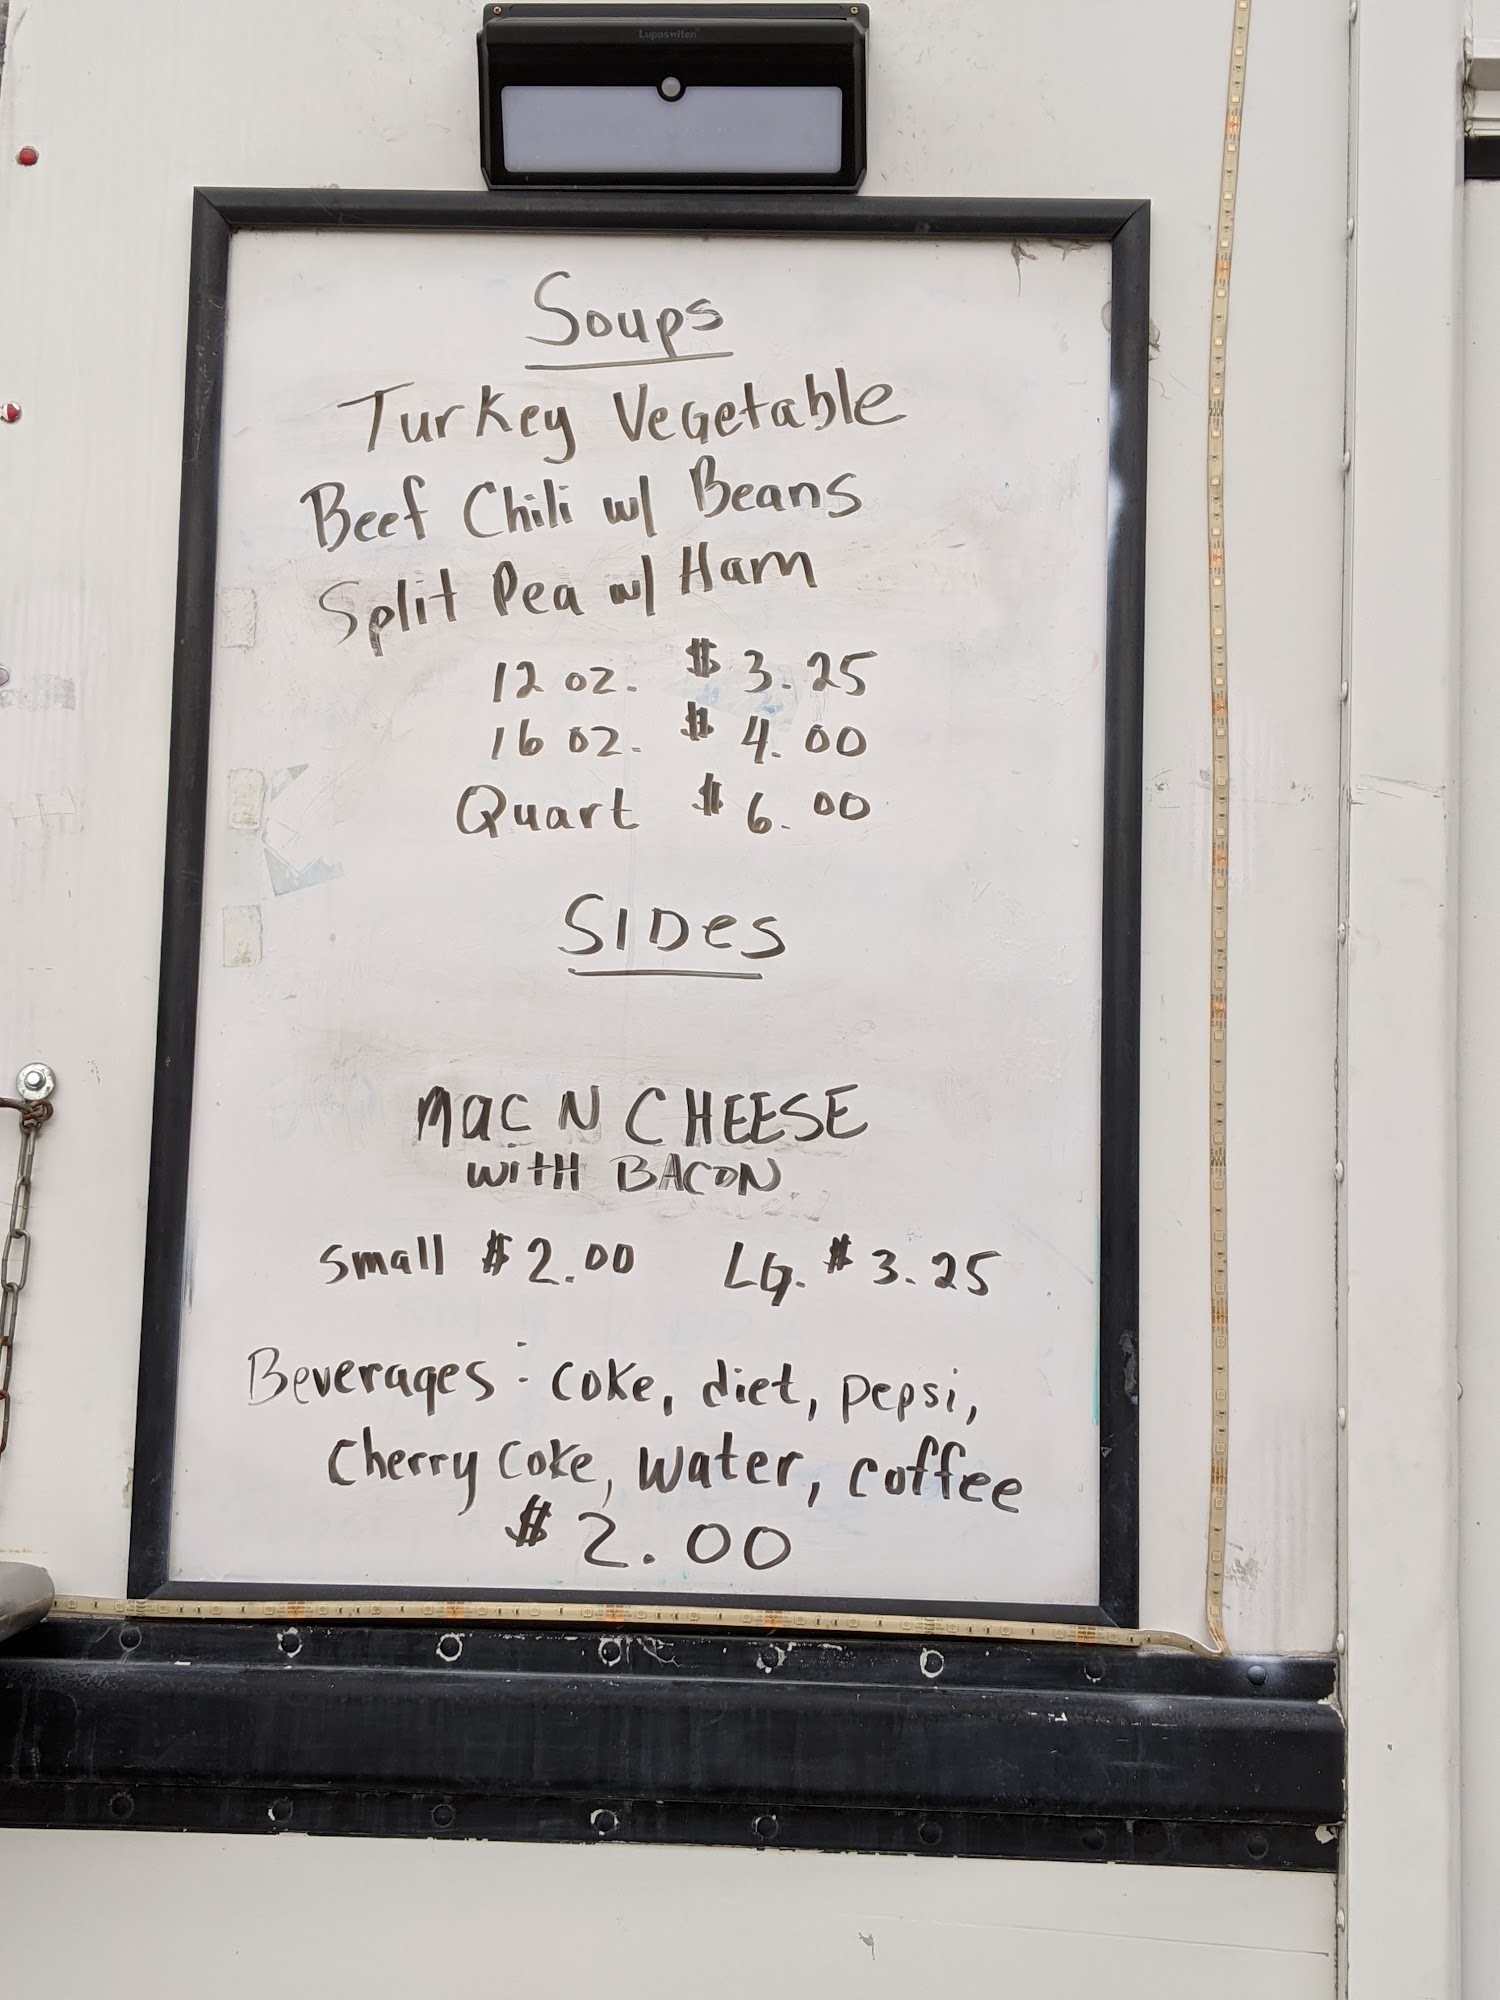 Luposwiten
Soups
Turkey Vegetable
Beef Chili w/ Beans
Split Pea w/ Ham
12 oz. $ 3.25
16 oz. $ 4.00
Quart $ 6.00
SIDes
Mac N CHEESE
with BACON
Small $2.00 LG. $3.25
Beverages: coke, diet, pepsi,
Cherry Coke, Water, coffee
$2.00